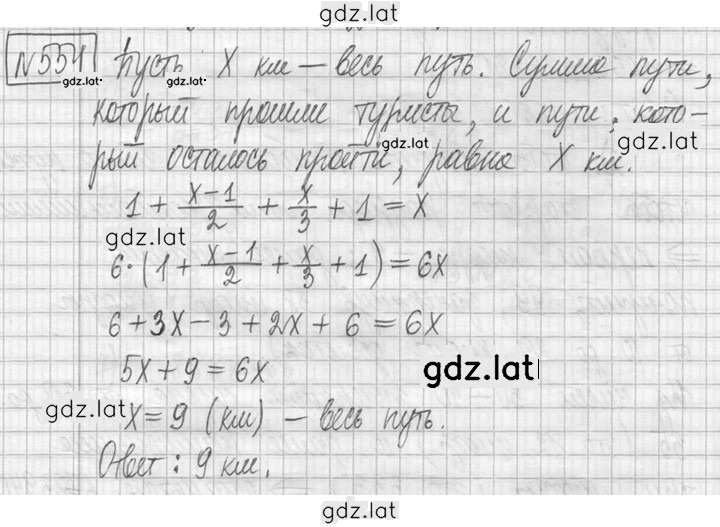 gdz.lat
N554 Пусть X км – весь путь. Сумма пути,
gdz.lat gdz.lat
который прошли туристы, и пути, кото-
gdz.lat gdz.lat
рый осталось пройти, равна X км.
1 + \frac{x-1}{2} + \frac{x}{3} + 1 = x
gdz.lat
6·(1 + \frac{x-1}{2} + \frac{x}{3} + 1) = 6x
6 + 3x – 3 + 2x + 6 = 6x
5x + 9 = 6x
gdz.lat
gdz.lat x = 9 (км) – весь путь.
Ответ: 9 км.
gdz.lat